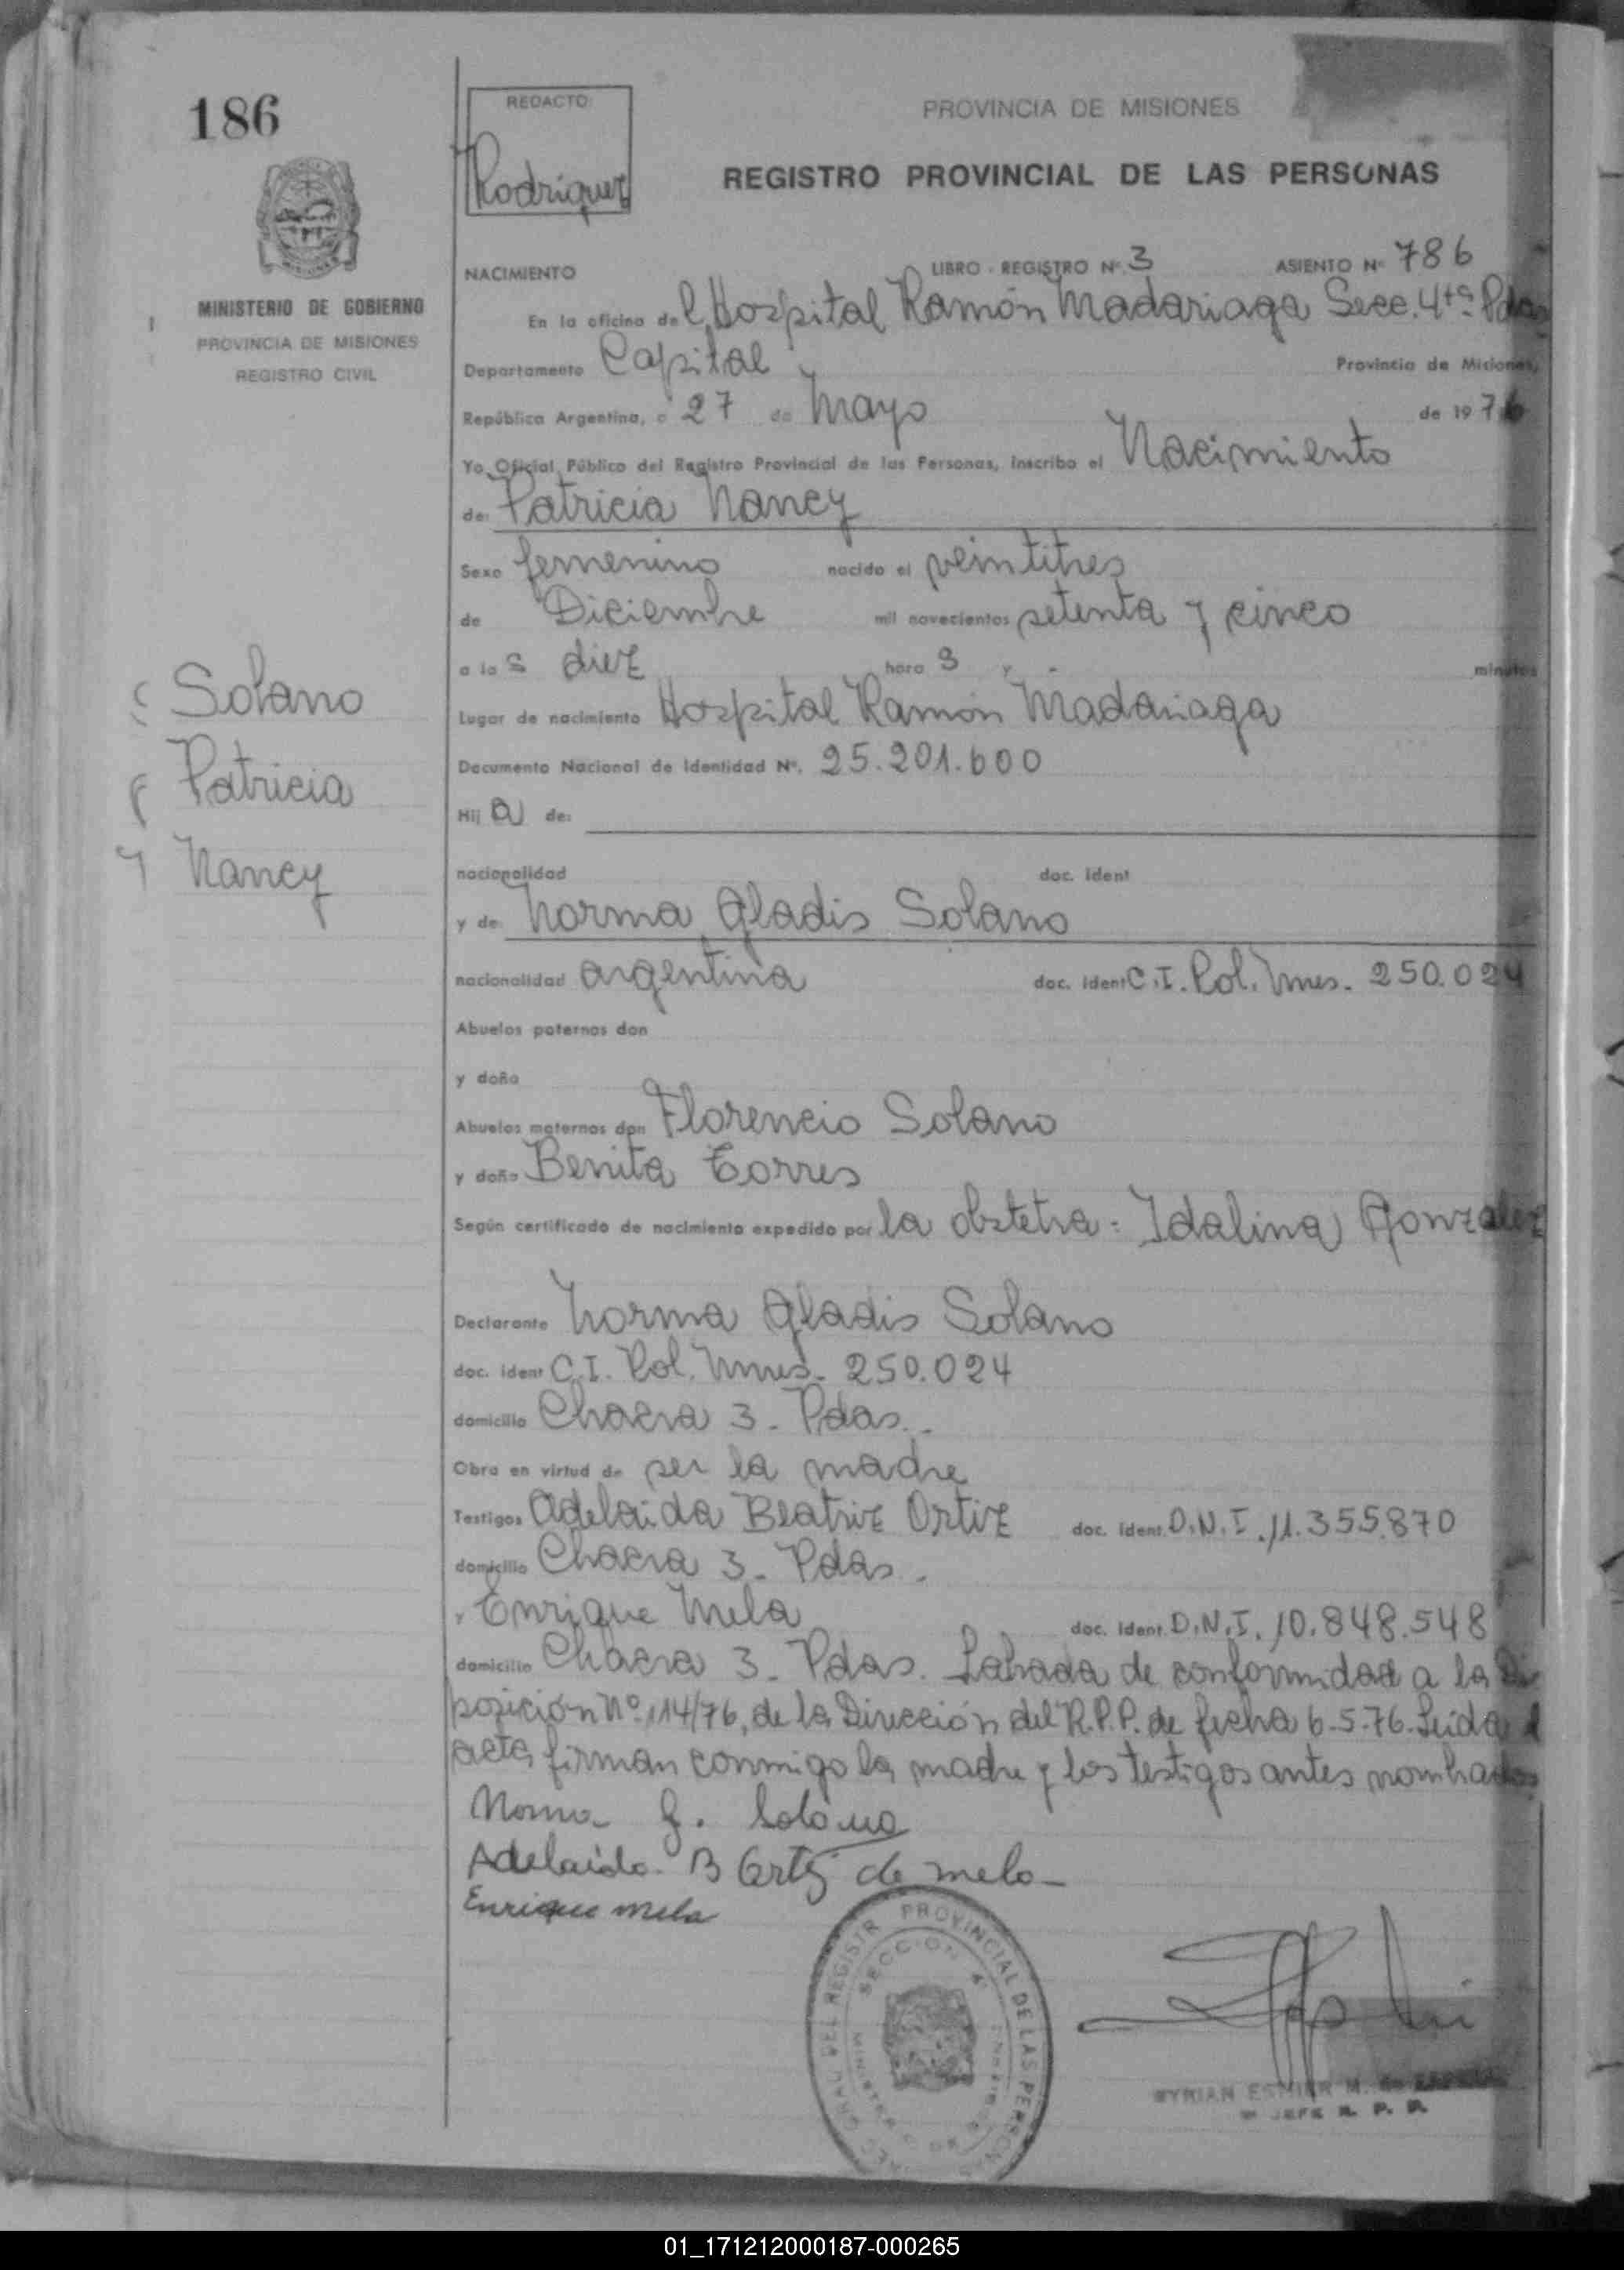 186
REDACTO:
Rodriguez
PROVINCIA DE MISIONES
REGISTRO PROVINCIAL DE LAS PERSONAS
MINISTERIO DE GOBIERNO
PROVINCIA DE MISIONES
REGISTRO CIVIL
NACIMIENTO LIBRO - REGISTRO Nº 3 ASIENTO Nº 786
En la oficina del Hospital Ramón Madariaga Secc. 4ta Pdas
Departamento Capital Provincia de Misiones,
República Argentina, a 27 de Mayo de 1976
Yo, Oficial Público del Registro Provincial de las Personas, inscribo el Nacimiento
de: Patricia Nancy
Sexo femenino nacido el veintitres
de Diciembre mil novecientos setenta y cinco
a las diez horas y - minutos
Lugar de nacimiento Hospital Ramón Madariaga
Documento Nacional de Identidad Nº. 25.201.600
Hija de:
Solano
Patricia
Nancy
nacionalidad doc. ident
y de Norma Gladis Solano
nacionalidad argentina doc. ident C.I. Pol. Mnes. 250.024
Abuelos paternos don
y doña
Abuelos maternos don Florencio Solano
y doña Benita Torres
Según certificado de nacimiento expedido por la obstetra: Idalina Gonzalez
Declarante Norma Gladis Solano
doc. ident C.I. Pol. Mnes. 250.024
domicilio Chacra 3 - Pdas.
Obra en virtud de ser la madre
Testigos Adelaida Beatriz Ortiz doc. ident. D.N.I. 11.355.870
domicilio Chacra 3 - Pdas.
y Enrique Mela doc. ident. D.N.I. 10.848.548
domicilio Chacra 3 - Pdas. Labrada de conformidad a la Dis
posición Nº 114/76, de la Dirección del R.P.P. de fecha 6-5-76. Leida el
acta, firman conmigo la madre y los testigos antes nombrados
Norma G. Solano
Adelaida B Ortiz de melo
Enrique Mela
PROVINCIAL DE LAS PERSONAS
SECCION 4
GRAL DEL REGISTR
MYRIAN ESTHER M. de
JEFE R. P. P.
01_171212000187-000265